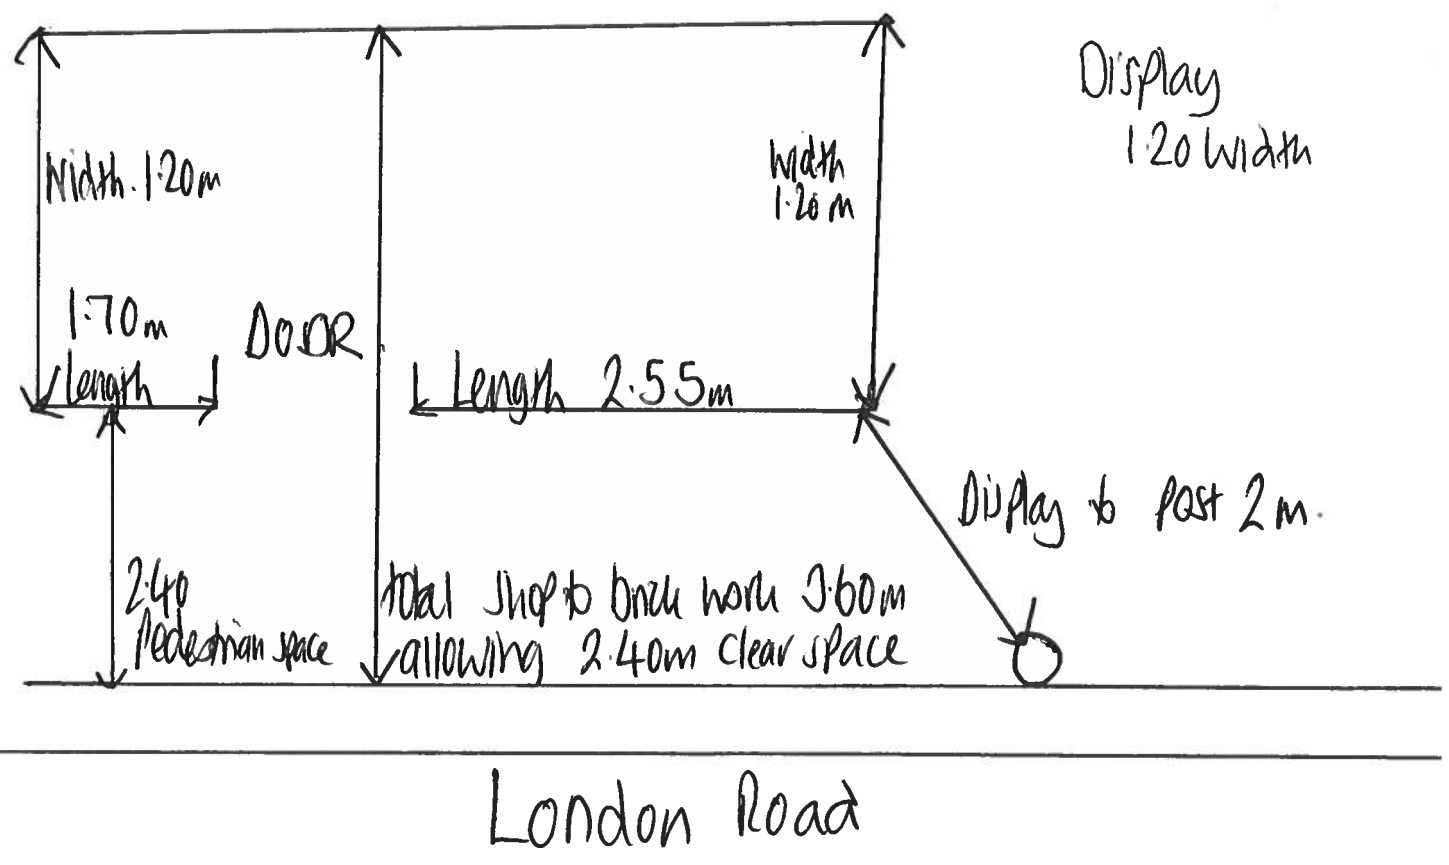 Display
1.20 Width
Width. 1.20m
Width
1.20m
1.70m
Length
DOOR
Length 2.55m
Display to Post 2m.
2.40
Pedestrian space
total shop to brick work 3.60m
allowing 2.40m clear space
London Road